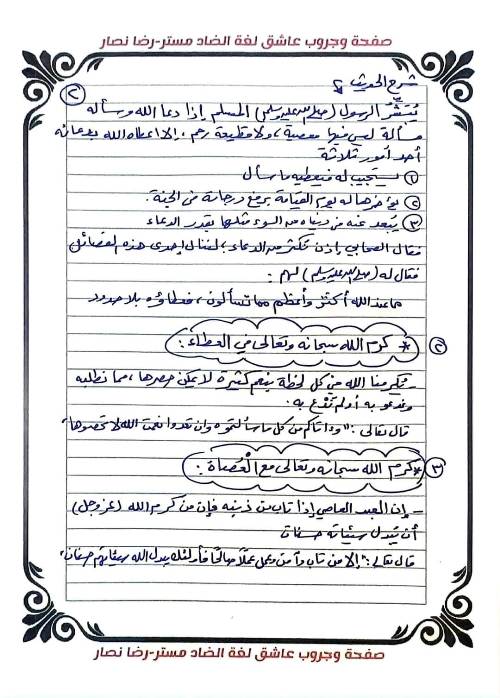 صفحة وجروب عاشق لغة الضاد مستر-رضا نصار
شرح الحديث :
٢
يُبَشِّرُ الرسول (صلى الله عليه وسلم) المسلم إذا دعا الله وسأله
مسألة ليس فيها معصية، ولا قطيعة رحم، إلا أعطاه الله بدعائه
أحد أمور ثلاثة
١ يستجيب له فيعطيه ما سأل
٢ يؤخرها له ليوم القيامة برفع درجاته في الجنة.
٣ يبعد عنه من دنياه من السوء مثلها بقدر الدعاء
فقال الصحابي إذن نكثر من الدعاء، لننال إحدى هذه الفضائل
فقال له (صلى الله عليه وسلم) لهم :
ما عند الله أكثر وأعظم مما تسألون، فعطاؤه بلا حدود
٢ * كرم الله سبحانه وتعالى في العطاء :
- يكرمنا الله من كل لحظة بنعم كثيرة لا يمكن حصرها، مما نطلبه
وندعو به أو لم نَدْعُ به.
قال تعالى : "وآتاكم من كل ما سألتموه وإن تعدوا نعمت الله لا تحصوها"
٣ * كرم الله سبحانه وتعالى مع الْعُصَاة :
- إن العبد العاصي إذا تاب من ذنبه فإن من كرم الله (عز وجل)
أن يُبدل سيئاته حسنات
قال تعالى : "إلا من تاب وآمن وعمل عملاً صالحًا فأولئك يبدل الله سيئاتهم حسنات"
صفحة وجروب عاشق لغة الضاد مستر-رضا نصار